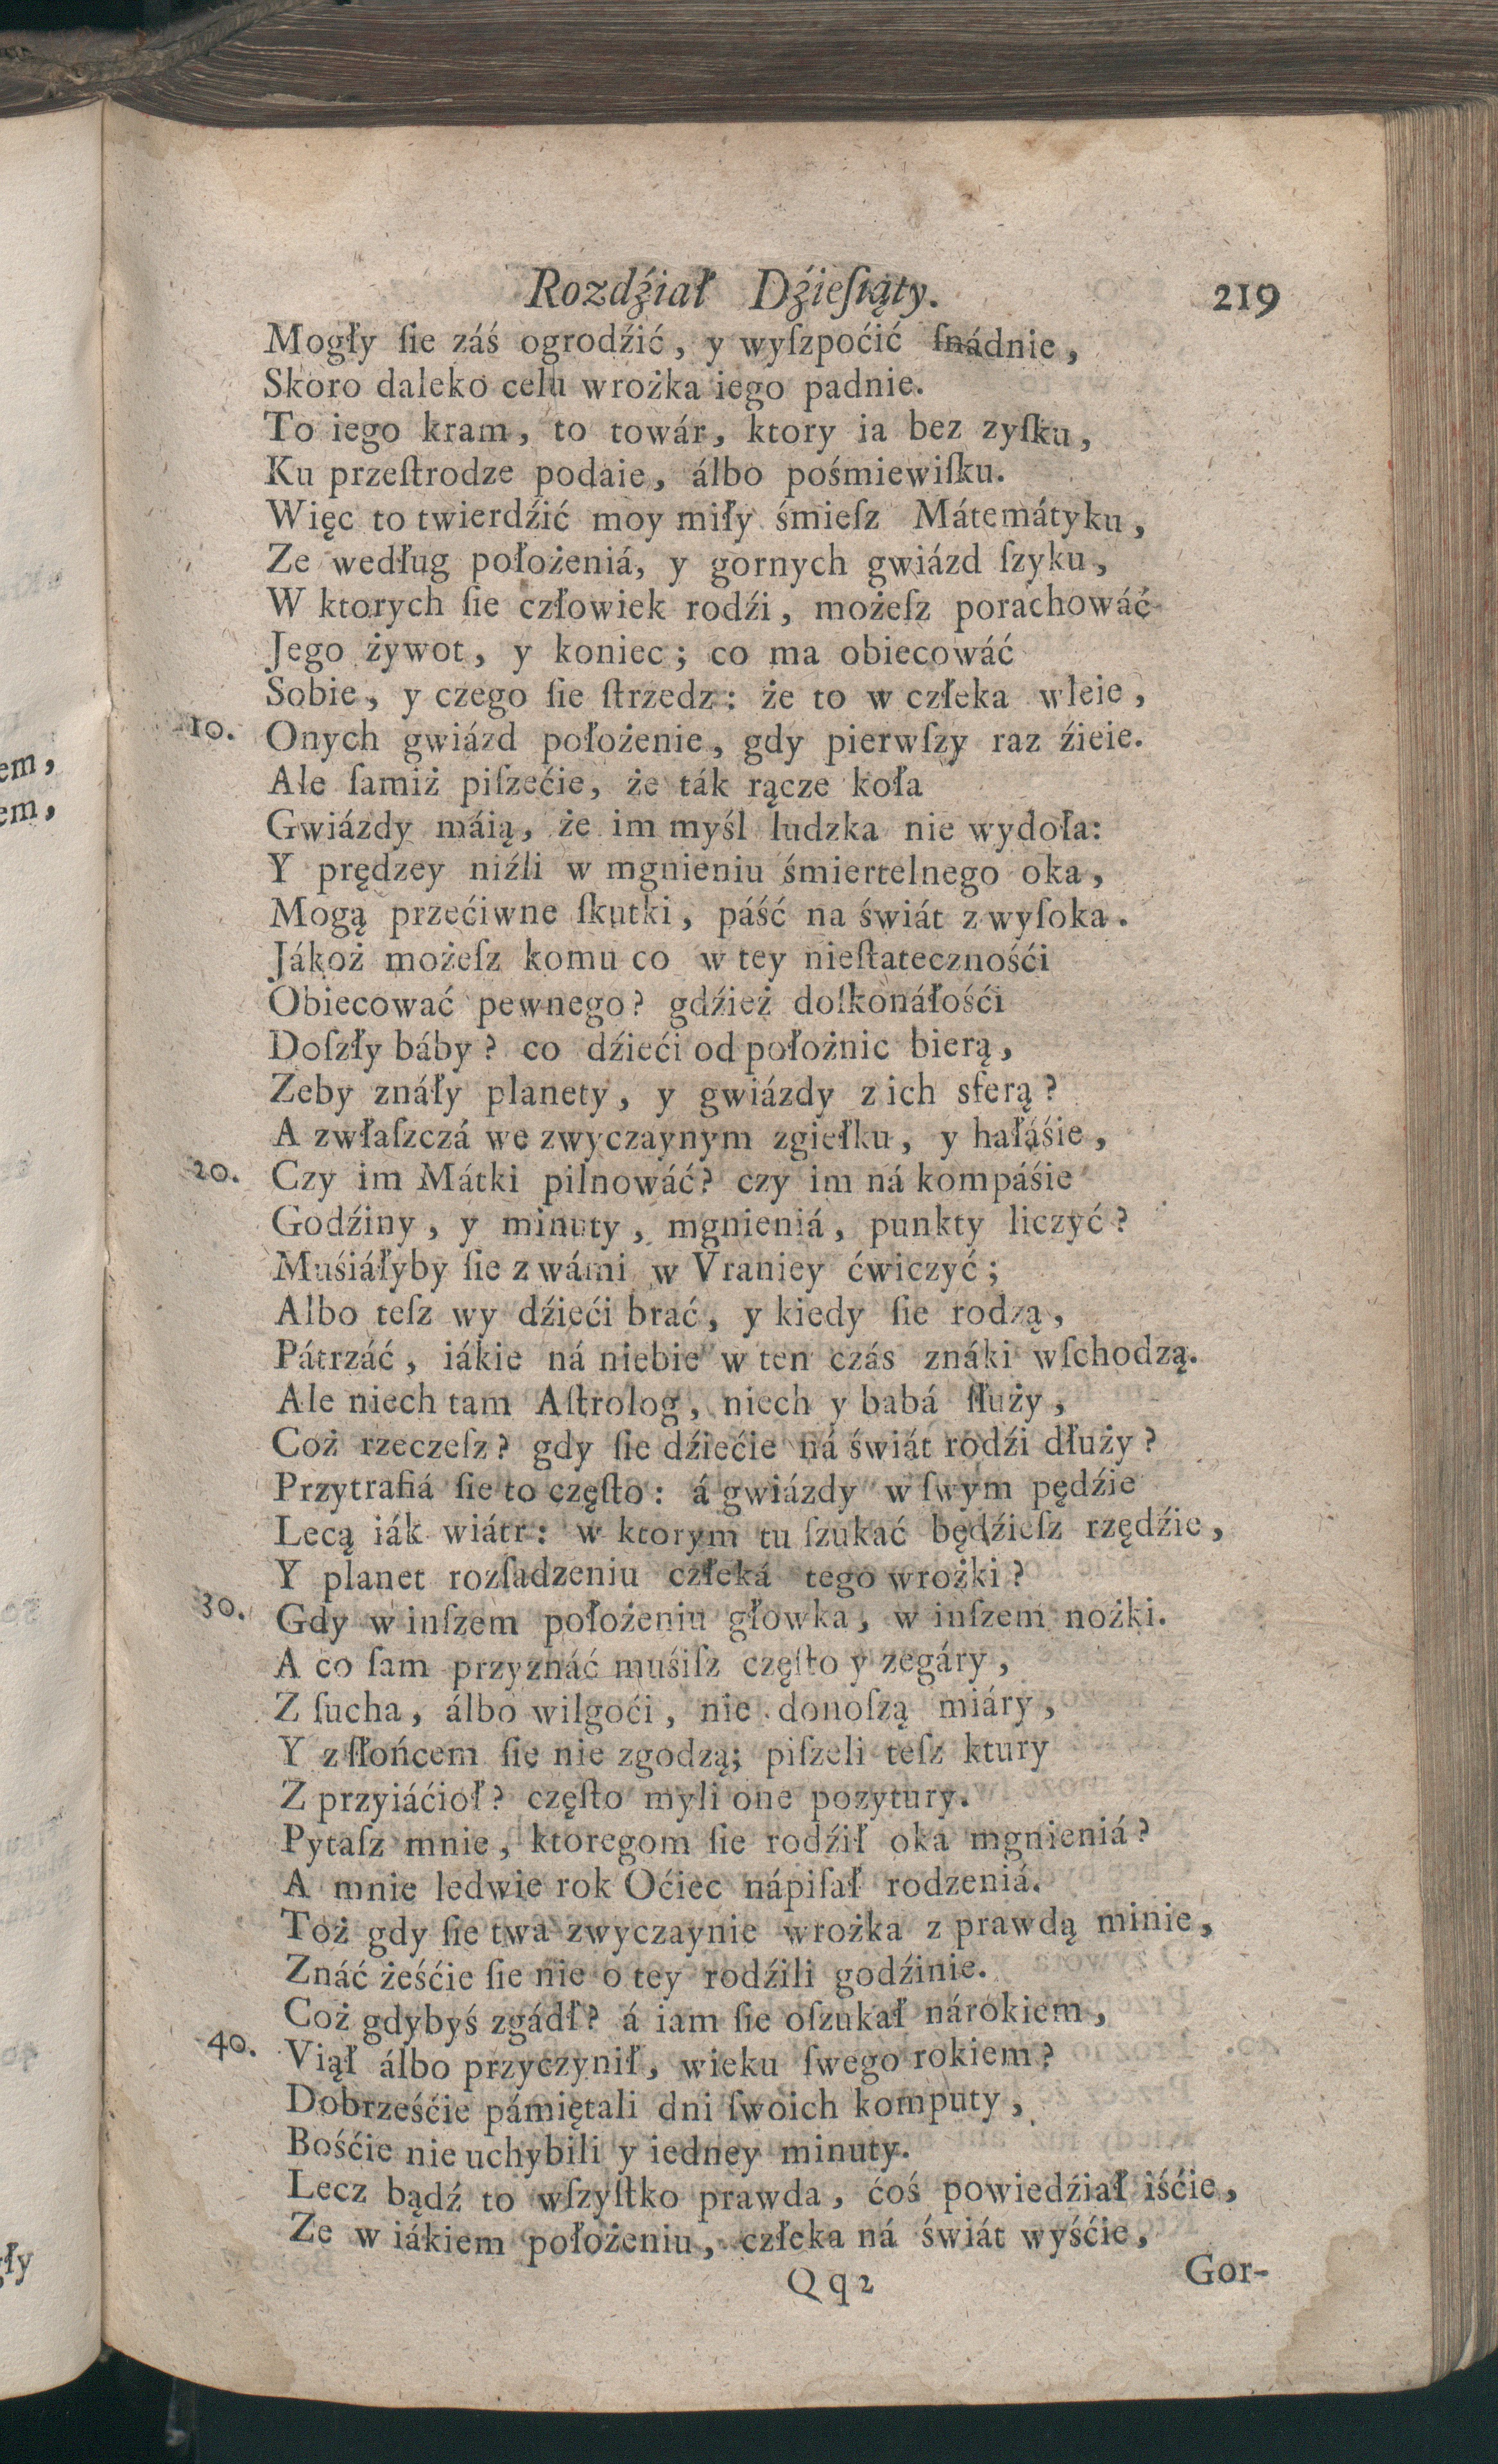 Rozdźiał Dźieſiąty. 219
Mogły ſie záś ogrodźić, y wyſzpoćić ſnádnie,
Skoro daleko celu wrożka iego padnie.
To iego kram, to towár, ktory ia bez zyſku,
Ku przeſtrodze podaie, álbo pośmiewiſku.
Więc to twierdźić moy miły śmieſz Mátemátyku,
Ze według położeniá, y gornych gwiázd ſzyku,
W ktorych ſie człowiek rodźi, możeſz porachowáć
Jego żywot, y koniec; co ma obiecowáć
Sobie, y czego ſie ſtrzedz: że to w człeka wleie,
10. Onych gwiázd położenie, gdy pierwſzy raz źieie.
Ale ſamiż piſzećie, że ták rącze koła
Gwiázdy máią, że im myśl ludzka nie wydoła:
Y prędzey niźli w mgnieniu śmiertelnego oka,
Mogą przećiwne ſkutki, páść na świát z wyſoka.
Jákoż możeſz komu co w tey nieſtatecznośći
Obiecować pewnego? gdźież doſkonáłośći
Doſzły báby? co dźieći od położnic bierą,
Zeby znáły planety, y gwiázdy z ich sferą?
A zwłaſzczá we zwyczaynym zgiełku, y hałáśie,
20. Czy im Mátki pilnowáć? czy im ná kompáśie
Godźiny, y minuty, mgnieniá, punkty liczyć?
Muśiáłyby ſie z wámi w Vraniey ćwiczyć;
Albo teſz wy dźieći brać, y kiedy ſie rodzą,
Pátrzáć, iákie ná niebie w ten czás znáki wſchodzą.
Ale niech tam Aſtrolog, niech y babá ſłuży,
Coż rzeczeſz? gdy ſie dźiećie ná świát rodźi dłuży?
Przytrafiá ſie to częſto: á gwiázdy w ſwym pędźie
Lecą iák wiátr: w ktorym tu ſzukać będźieſz rzędźie,
Y planet rozſadzeniu człeká tego wrożki?
30. Gdy w inſzem położeniu głowka, w inſzem nożki.
A co ſam przyznáć muśiſz częſto y zegáry,
Z ſucha, álbo wilgoći, nie donoſzą miáry,
Y z ſłońcem ſię nie zgodzą; piſzeli teſz ktury
Z przyiáćioł? częſto myli one pozytury.
Pytaſz mnie, ktoregom ſie rodźił oka mgnieniá?
A mnie ledwie rok Oćiec nápiſał rodzeniá.
Toż gdy ſie twa zwyczaynie wrożka z prawdą minie,
Znáć żeśćie ſie nie o tey rodźili godźinie.
Coż gdybyś zgádł? á iam ſie oſzukał nárokiem,
40. Viął álbo przyczynił, wieku ſwego rokiem?
Dobrześćie pámiętali dni ſwoich komputy,
Bośćie nie uchybili y iedney minuty.
Lecz bądź to wſzyſtko prawda, ćoś powiedźiał iśćie,
Ze w iákiem położeniu, człeka ná świát wyśćie,
Qq2 Gor-
em,
em,
gły